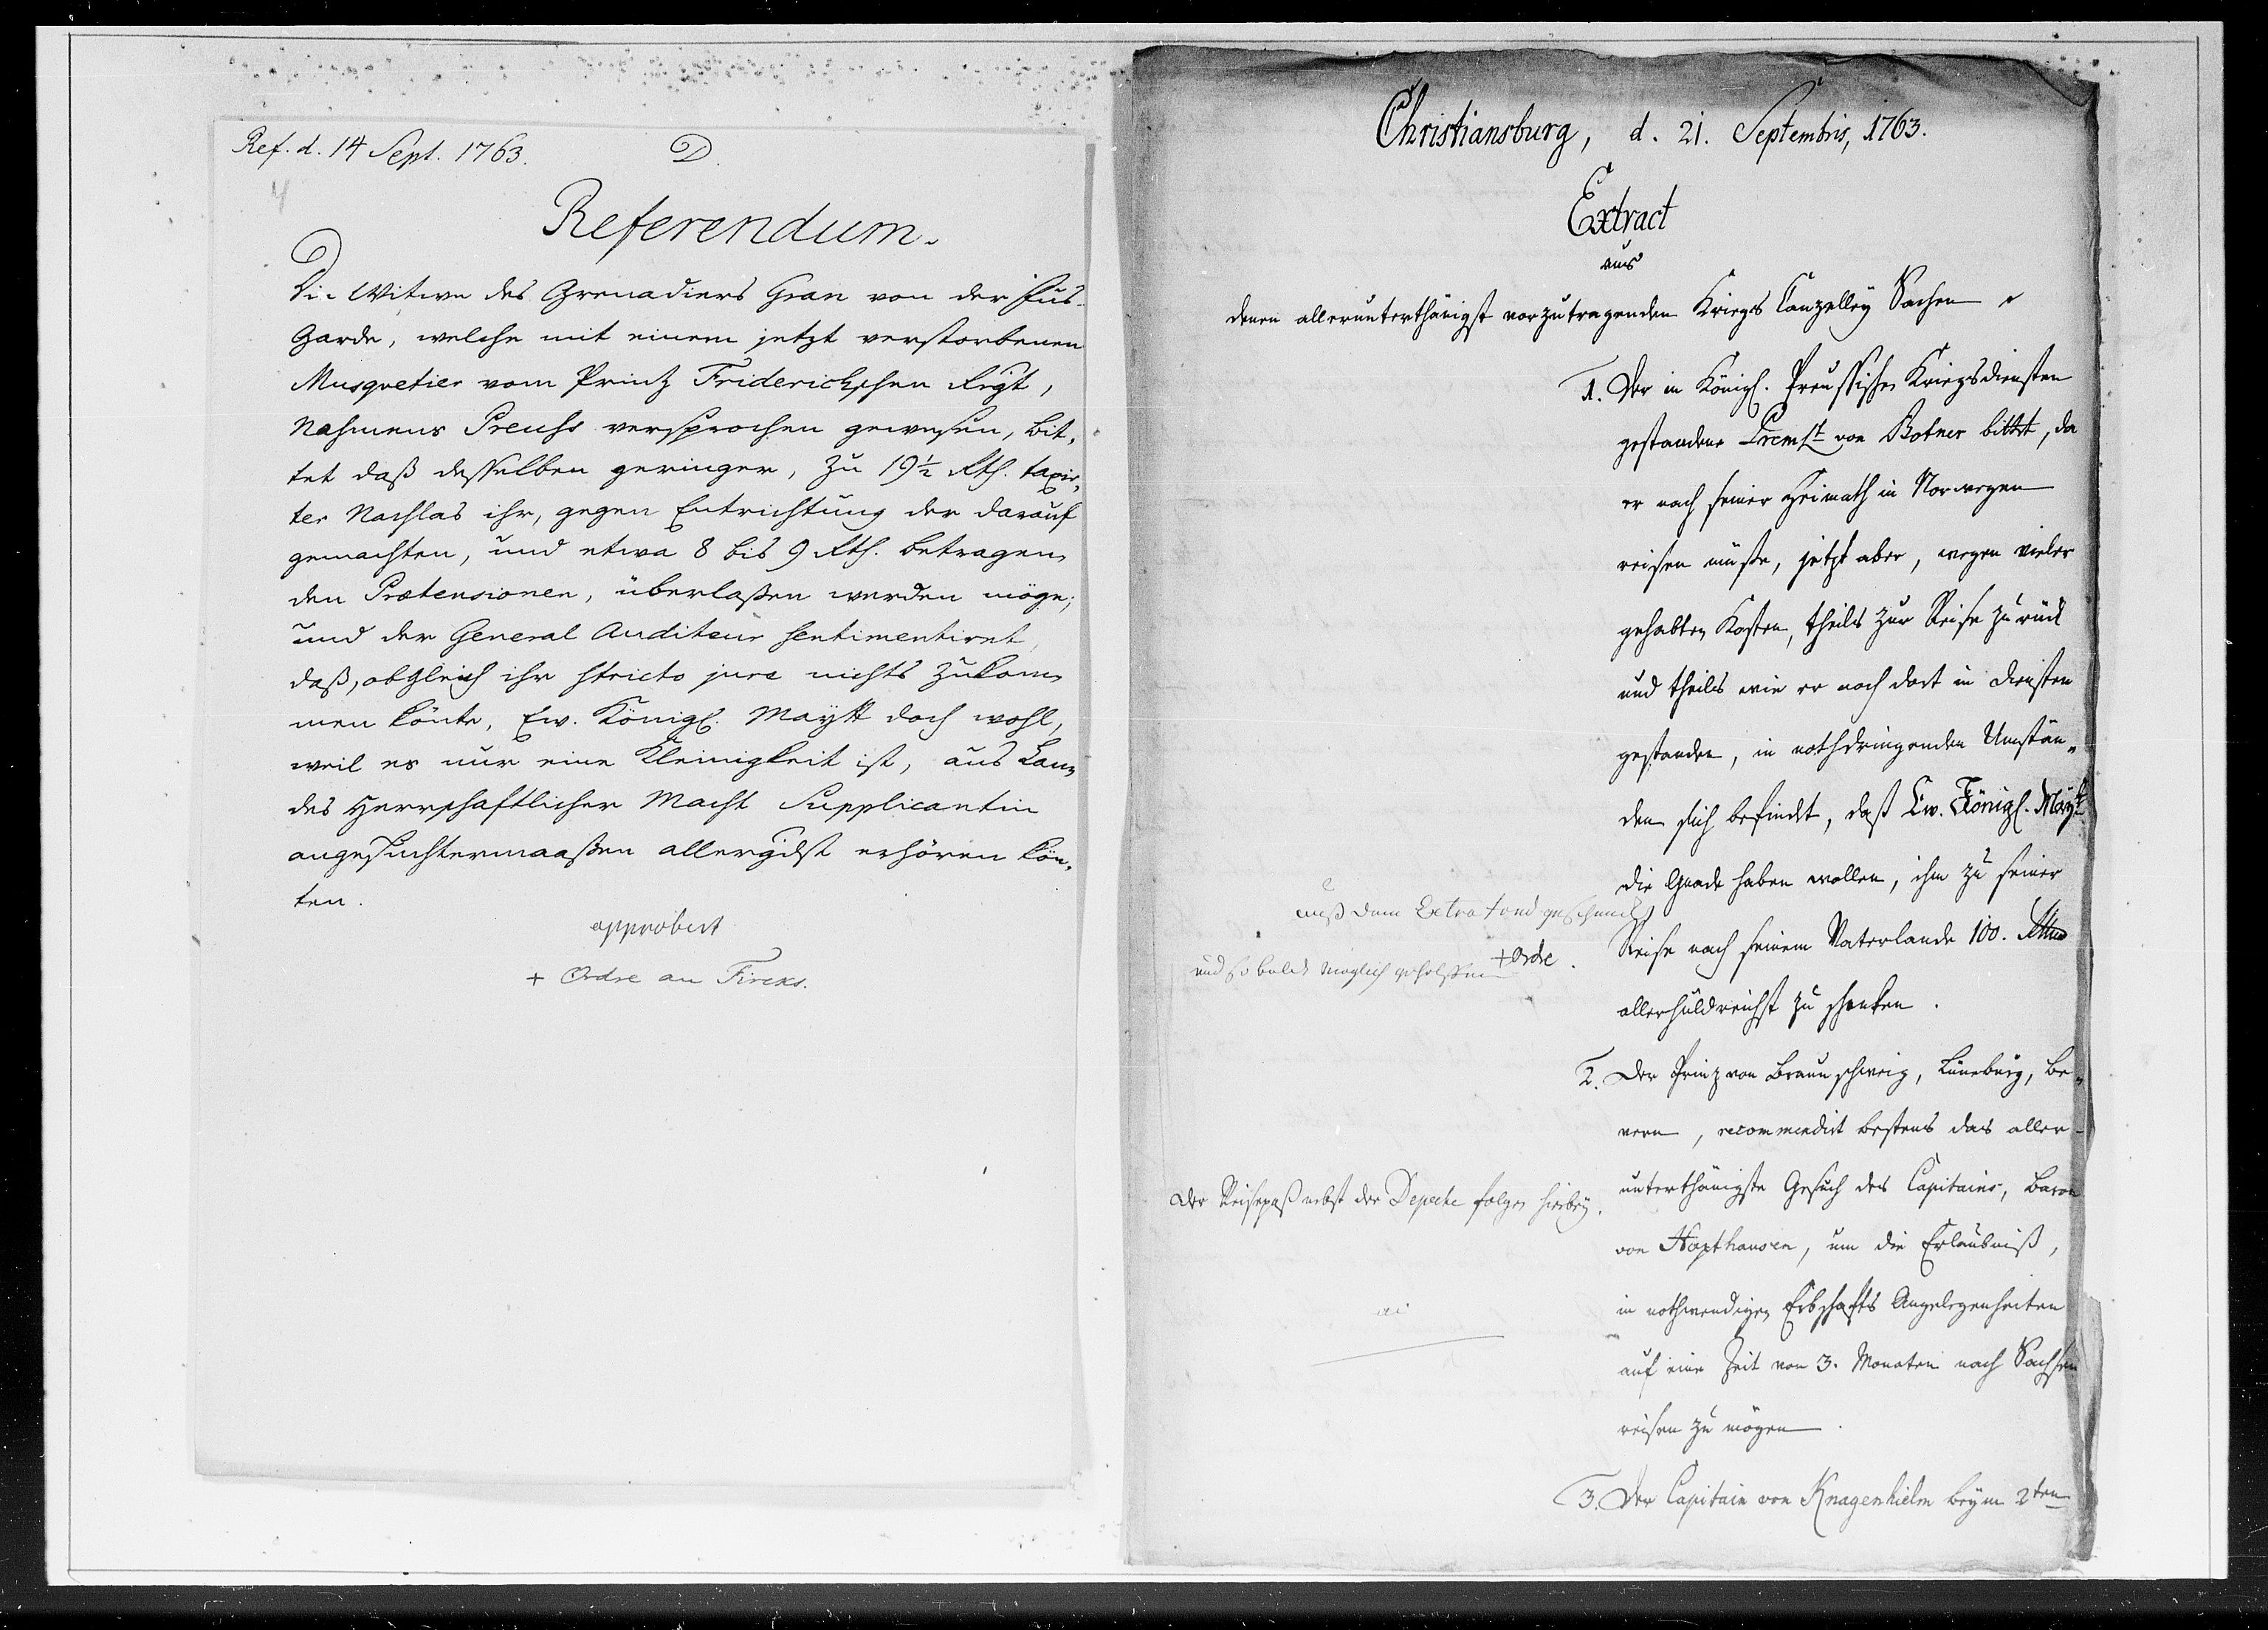 Ref. d. 14 Sept. 1763.
D.
4
Referendum.
Die Witwe des Grenadiers Gran von der Fus-
Garde, welche mit einem jetzt verstorbenen
Musquetier vom Printz Friderichschen Regt,
Nahmens Preuhs versprochen gewesen, bit,
tet daß desselben geringer, zu 19½ Rth. taxir,
ter Nachlas ihr, gegen Entrichtung der darauf
gemachten, und etwa 8 bis 9 Rth. betragen,
den Prætensionen, überlaßen werden möge;
und der General Auditeur sentimentiret,
daß, obgleich ihr stricto jure nichts zukom,
men könte, Ew. Königl. Maytt doch wohl,
weil es nur eine Kleinigkeit ist, aus Lan,
des Herrschaftlicher Macht Supplicantin
angesuchtermaaßen allergdst erhören kön,
ten.
approbirt
+ Ordre an Fircks.
Christiansburg, d. 21. Septembris, 1763.
Extract
aus
denen allerunterthänigst vorzutragenden Kriegs Canzelley Sachen
1. Der in Königl. Preussischen Kriegsdiensten
gestandene Premlt von Botner bittet, da
er nach seiner Heimath in Norwegen
reisen müße, jetzt aber, wegen vieler
gehabten Kosten, theils zur Reise zurück
und theils wie er noch dort in Diensten
gestanden, in nothdringenden Umstän„
den sich befindet, daß Ew. Königl. Maytt
die Gnade haben wollen, ihm zu seiner
Reise nach seinem Vaterlande 100. Rthlr
allerhuldreichst zu schenken.
auß dem Extra fond geschenck
und so balde moglich geholffen
+ Ordre.
2. Der Prinz von Braunschweig, Lüneburg, Be„
vern, recommendirt bestens das aller-
unterthänigste Gesuch des Capitains, Baron
von Haxthausen, um die Erlaubniß,
in nothwendigen Erbschafts Angelegenheiten
auf eine Zeit von 3. Monaten nach Sachsen
reisen zu mögen.
Der Reisepaß nebst der Depeche folgen hierbey.
3. Der Capitain von Knagenhielm beym 2ten